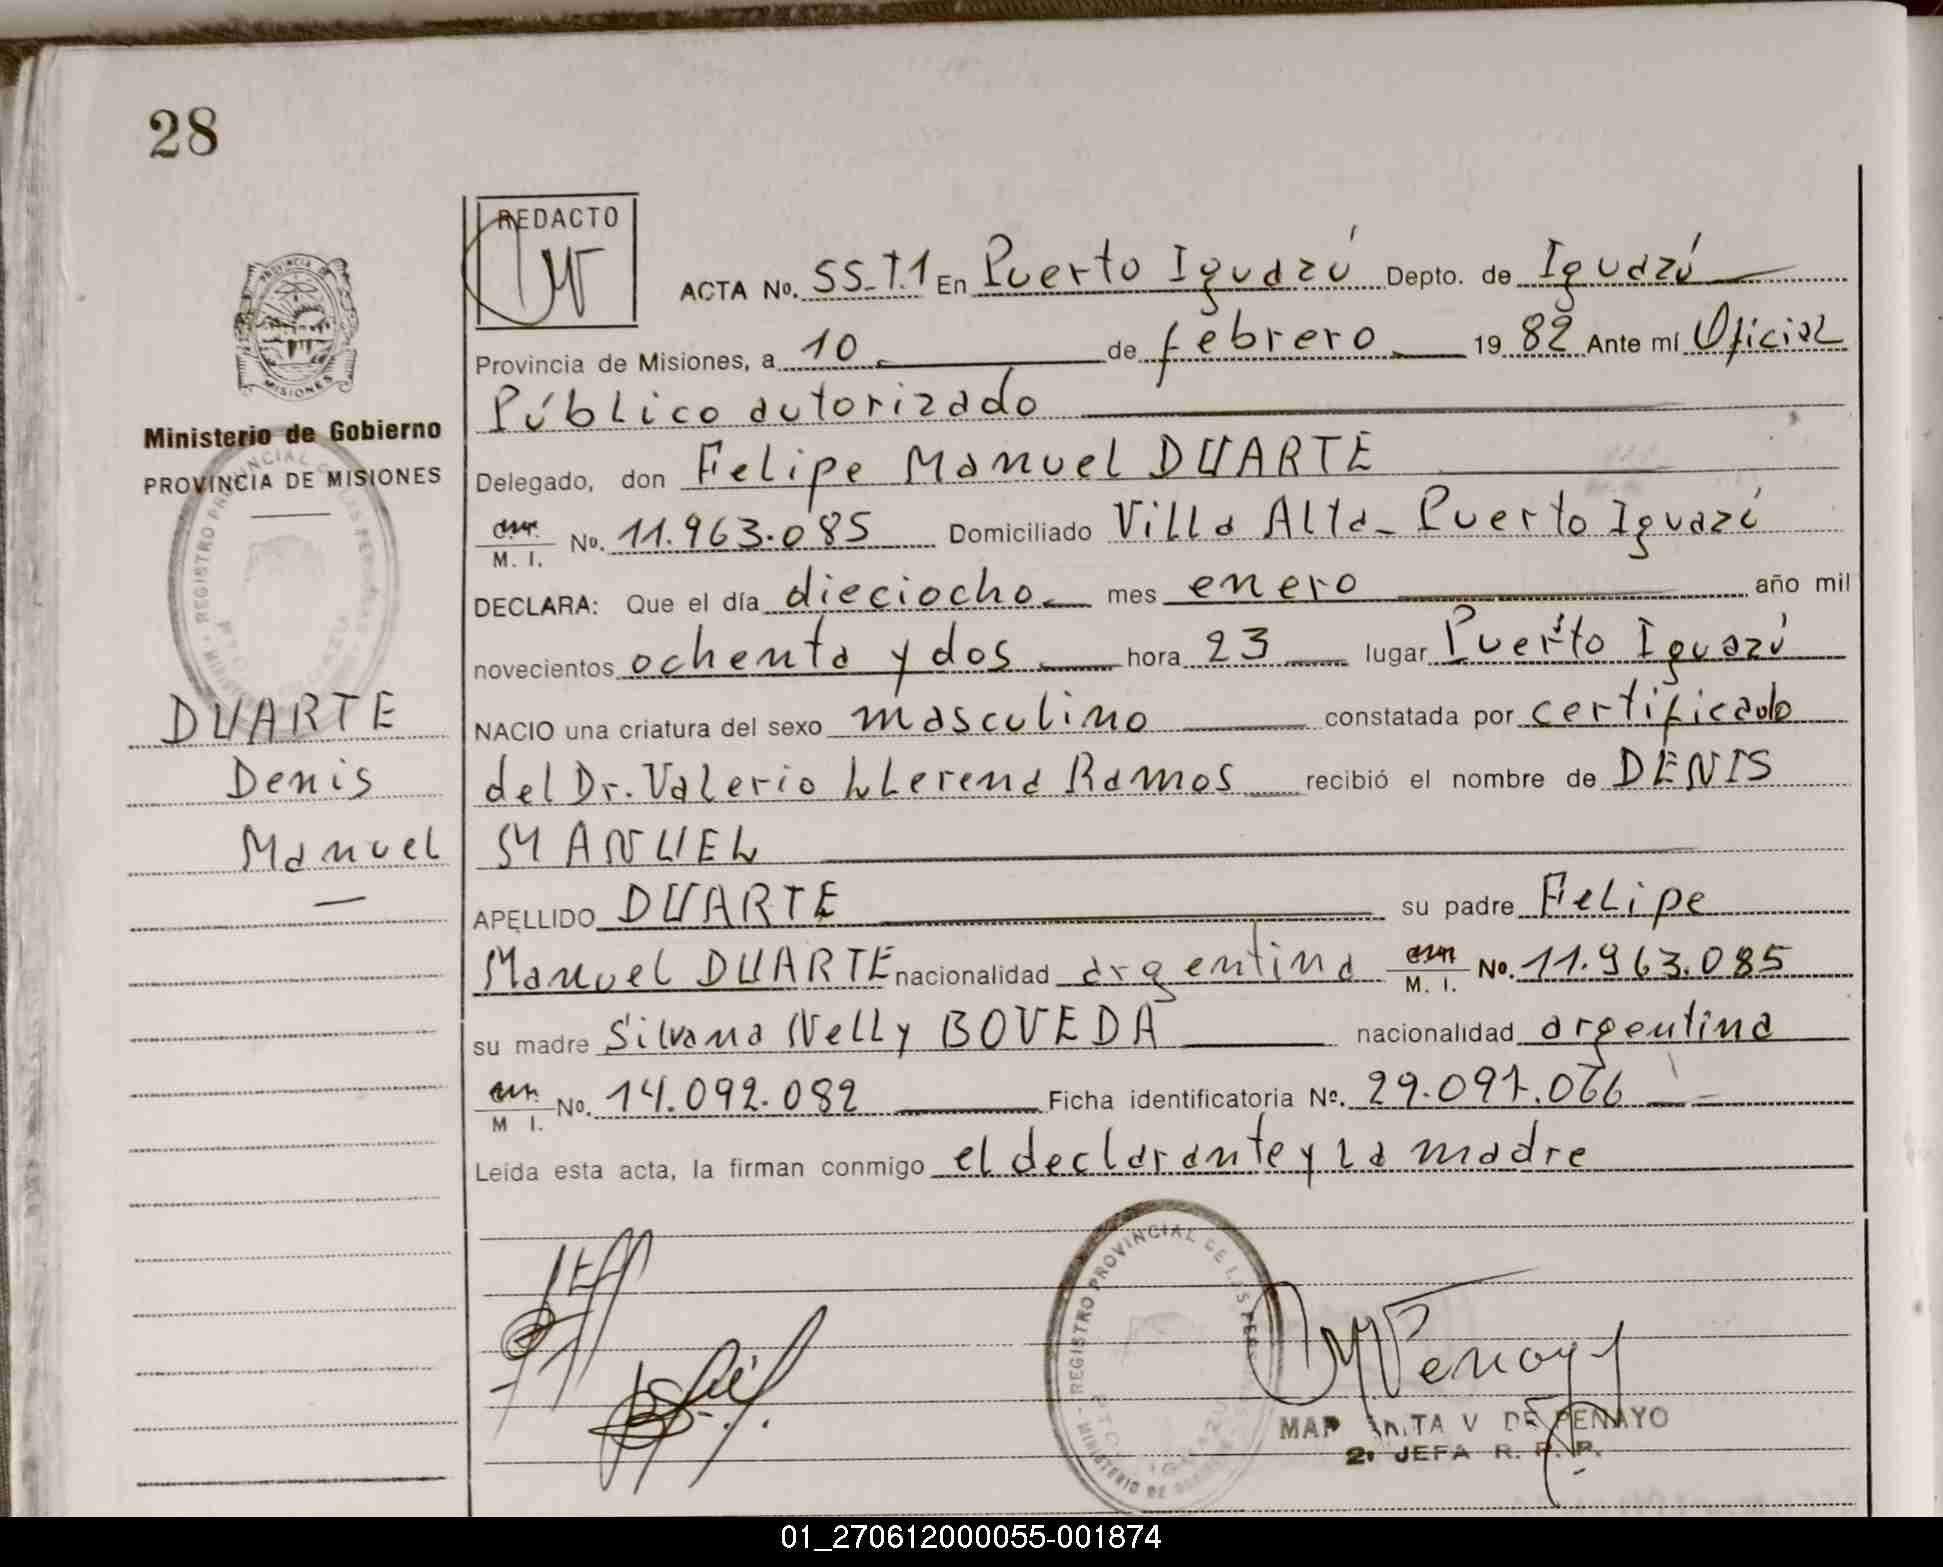 28
REDACTO
PROVINCIA DE
MISIONES
Ministerio de Gobierno
PROVINCIA DE MISIONES
DUARTE
Denis
Manuel
ACTA No. 55-T.1 En Puerto Iguazú Depto. de Iguazú
Provincia de Misiones, a 10 de febrero 19 82 Ante mí Oficial
Público autorizado
Delegado, don Felipe Manuel DUARTE
M. I. No. 11.963.085 Domiciliado Villa Alta - Puerto Iguazú
DECLARA: Que el día dieciocho mes enero año mil
novecientos ochenta y dos hora 23 lugar Puerto Iguazú
NACIO una criatura del sexo masculino constatada por certificado
del Dr. Valerio LLerena Ramos recibió el nombre de DENIS
MANUEL
APELLIDO DUARTE su padre Felipe
Manuel DUARTE nacionalidad argentina M. I. No. 11.963.085
su madre Silvana Nelly BOVEDA nacionalidad argentina
M I. No. 14.092.082 Ficha identificatoria Nº. 29.097.066
Leída esta acta, la firman conmigo el declarante y la madre
REGISTRO PROVINCIAL DE LAS PER
MINISTERIO DE
V DE PENAYO
2º JEFA R. P. P.
01_270612000055-001874